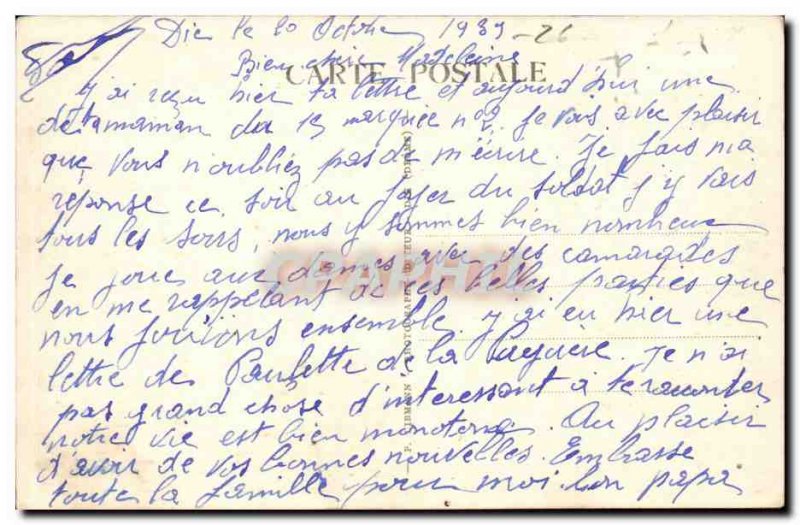 Die le 20 Octobre 1939
Bien chère Madeleine
CARTE POSTALE
j'ai reçu hier ta lettre et aujourd'hui une
de ta maman du 15 marquée n° 2. Je vois avec plaisir
que vous n'oubliez pas de m'écrire. Je fais ma
réponse ce soir au foyer du soldat j'y vais
tous les soirs, nous y sommes bien nombreux
je joue aux dames avec des camarades
en me rappelant de ces belles parties que
nous jouions ensemble. j'ai eu hier une
lettre de Paulette de la. Je n'ai
pas grand chose d'interessant à te raconter
notre vie est bien monotone. Au plaisir
d'avoir de vos bonnes nouvelles. Embrasse
toute la famille pour moi ton papa